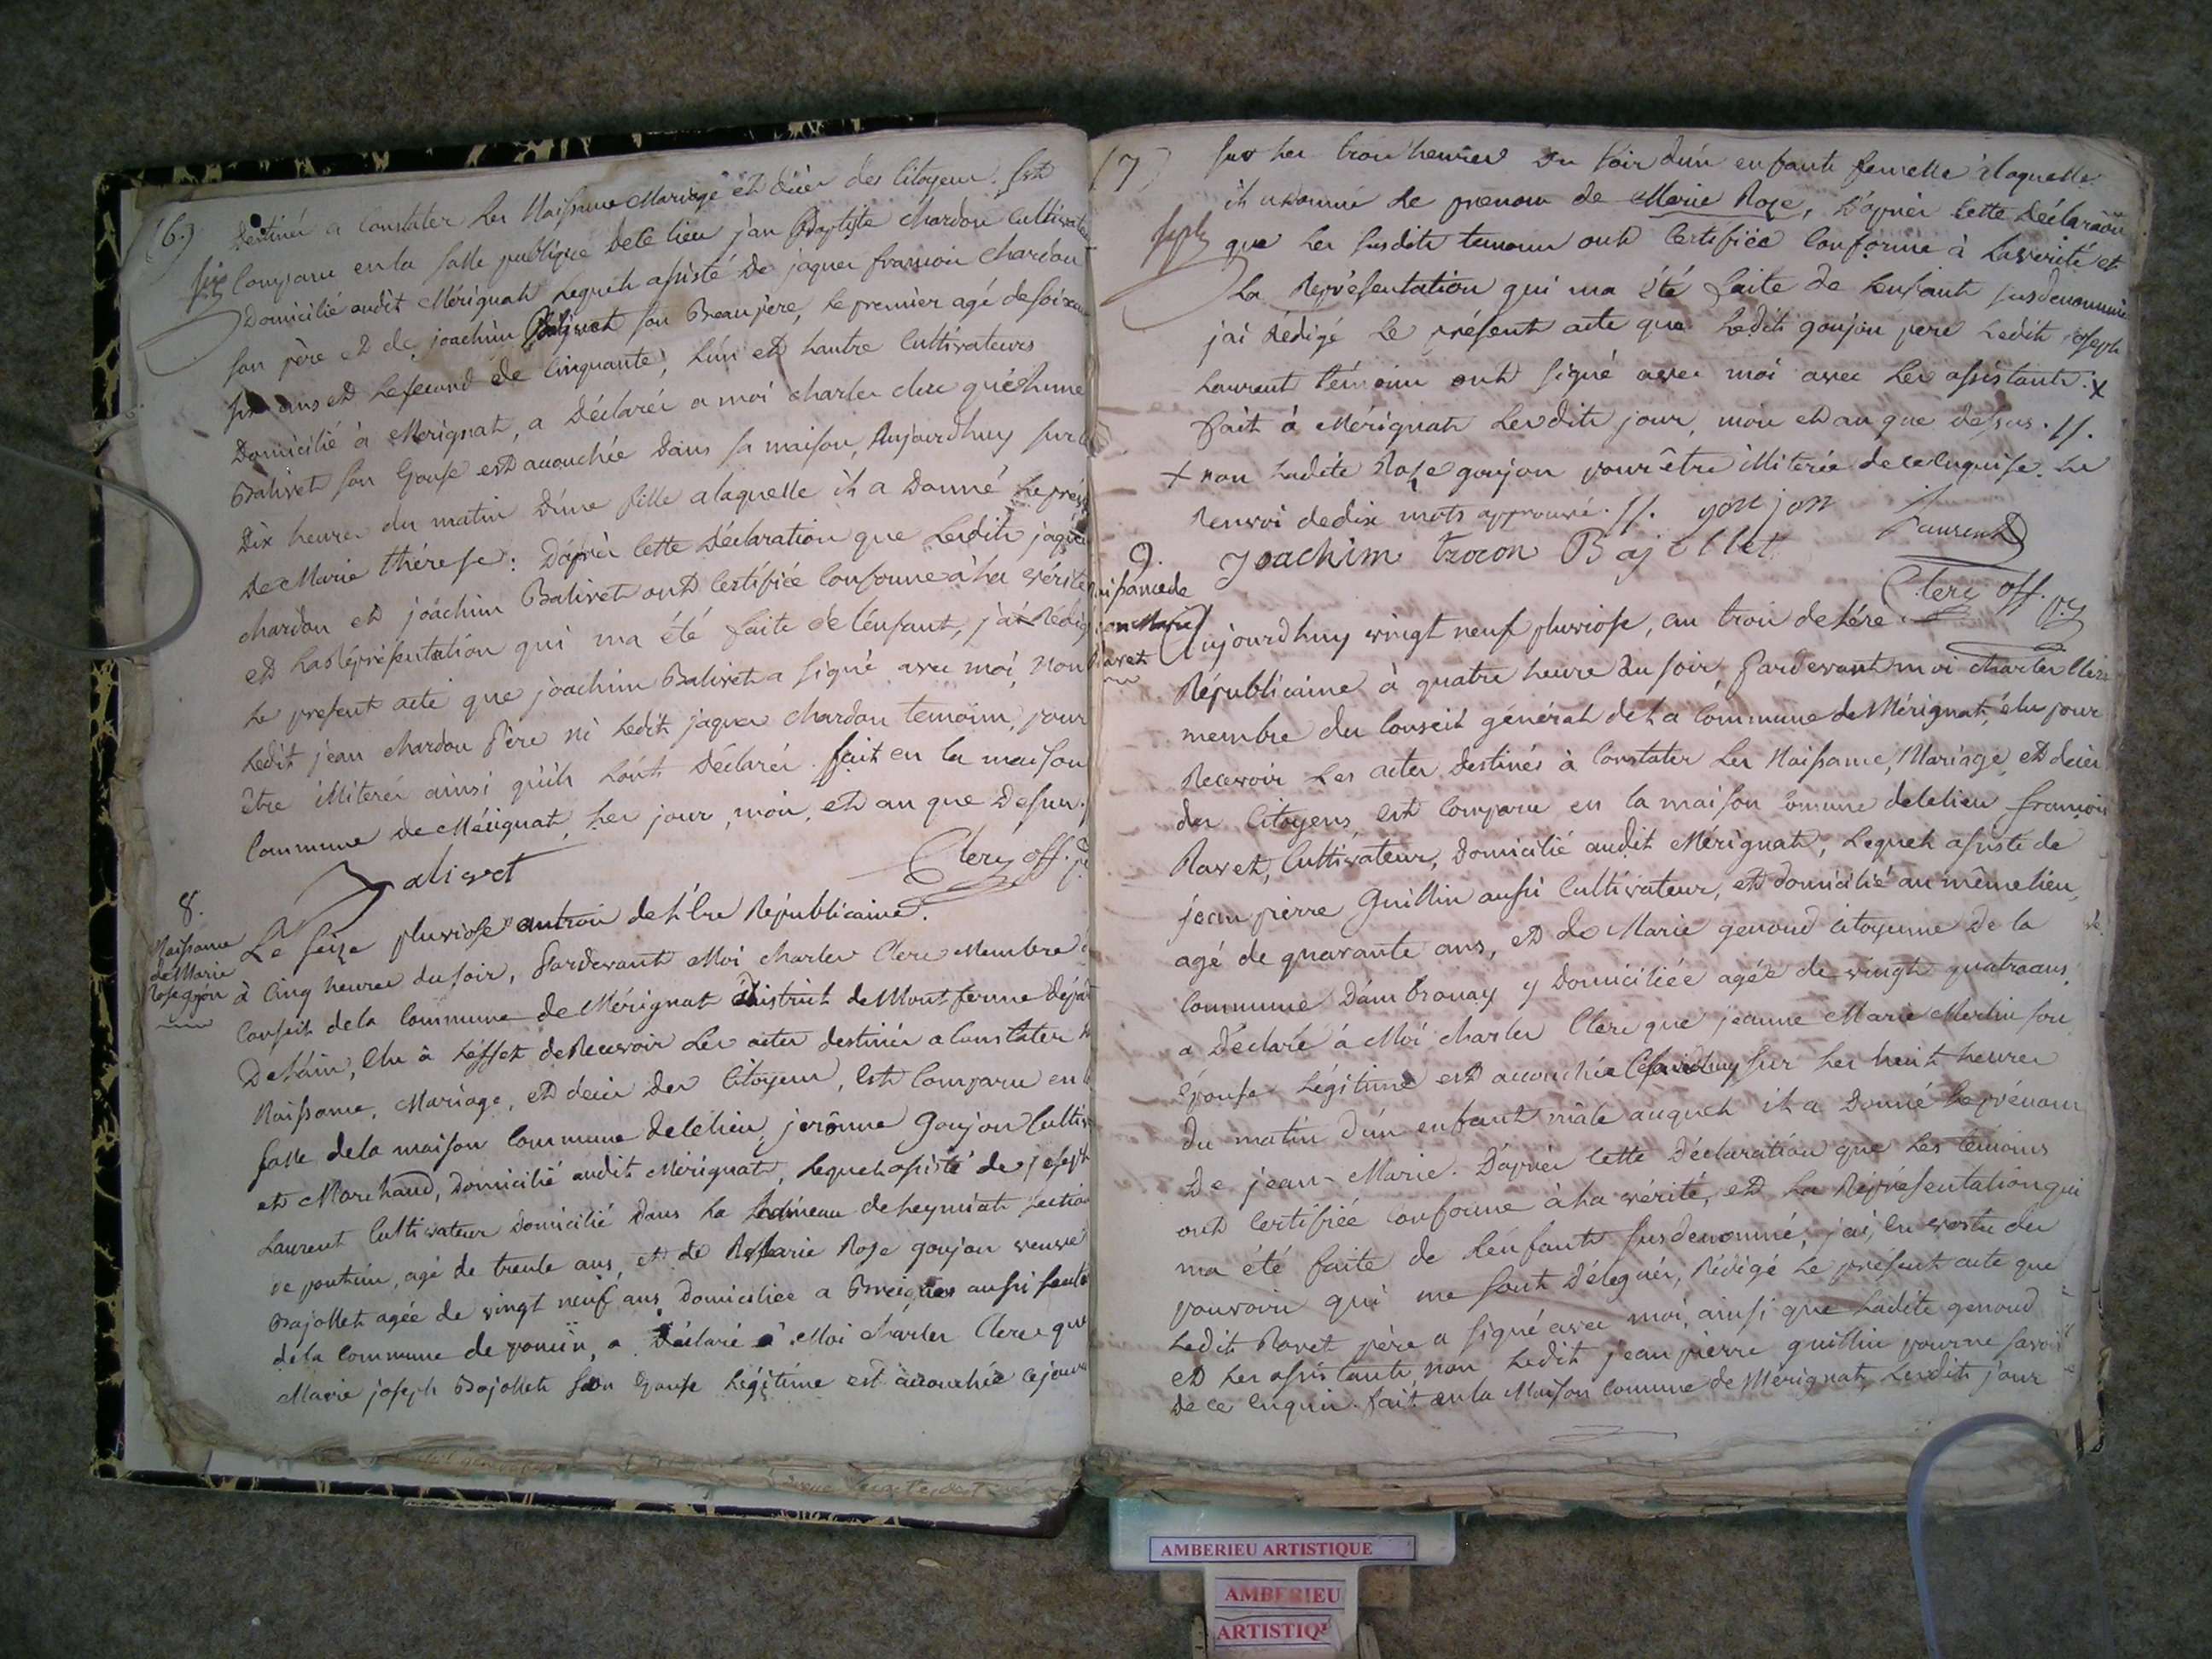 (6.) destinés a constater les Naissance Mariage et décès des Citoyens. Est
six Comparu en la salle publique de ce lieu jân Baptiste chardon Cultivate
Domicilié audit Mérignat lequel assisté de jaques francois Chardon
son père et de joachim Balivet son Beaupère, le premier agé de soixan
six ans et le second de Cinquante, l'un et l'autre Cultivateurs
Domicilié à Mérignat, a Déclaré a moi charles clerc que
Balivet son Epouse est accouchée dans sa maison, Aujourdhuy sur l
Dix heures du matin d'une fille a laquelle il a donné le prén
de Marie thérese: D'après cette déclaration que lesdits jaques
chardon et joâchim Balivet ont Certifiée Conforme à la vérité
et la Représentation qui ma été faite de l'enfant, j'ai Rédig
le present acte que joachim Balivet a signé avec moi, non
ledit jean chardon Père ni ledit jaques chardon temoins, pour
être illiterés ainsi qu'ils l'ont déclarés. fait en la maison
Commune de Mérignat, les jour, mois, et an que dessus.
Balivet Clerc off. p.
8.
Naissance
de Marie
Rose gojon
Le seize pluviose an trois de l'Ere Républicaine.
à Cinq heures du soir, Pardevant Moi charles Clerc Membre d
Conseil de la Commune de Mérignat district de Montferme dépar
De l'ain, Elu à l'effet de Recevoir les actes destinés a Constater l
Naissance, Mariage, et décès des Citoyens, Est Comparu en l
salle de la maison Commune de ce lieu, jerôme Goujon Cultiv
et Marchand, domicilié audit Mérignat, lequel assisté de joseph
Laurent Cultivateur domicilié dans la hameau de leymiat section
de pontcin, agé de trente ans, et de Marie Rose goujon veuve
Bajollet agée de vingt neuf ans domiciliée a aussi
de la Commune de poncin, a Déclaré à Moi Charles Clerc que
Marie joseph Bajollet son Epouse légitime est accouchée cejour
(7) sur les trois heures du soir d'un enfant femelle à laquelle
il a donné le prenom de Marie Rose, D'après Cette Déclaraôn
sept que les susdits temoins ont Certifiée Conforme à la vérité et
La Représentation qui ma été faite de l'enfant susdenommé
jai Rédigé le présent acte que ledit goujon père ledit joseph
Laurent témoins ont signé avec moi avec les assistants. x
fait à Mérignat lesdits jour, mois et an que dessus. //.
x non ladite Rose goujon pour être illiterée de ce Enquise. Le
Renvoi de dix mots approuvé. //. goujon Laurent
Joachim trocon Bajollet
Clerc off. p.
9.
Naissance de
jean Marie
Ravet
Aujourdhuy vingt neuf pluviose, an trois de l'ére
Républicaine à quatre heure du soir Pardevant moi charles Clerc
membre du Conseil général de la Commune de Mérignat, élu pour
Recevoir les actes destinés à Constater les Naissance, Mariage, et décès
des Citoyens, est Comparu en la maison Comune de ce lieu françois
Ravet, Cultivateur, Domicilié audit Mérignat, lequel assisté de
jean pierre Guillin aussi Cultivateur, et domicilié au même lieu,
agé de quarante ans, et de Marie genoud Citoyenne de la
Commune D'ambronay y Domiciliée agée de vingt quatre ans,
a Déclaré à Moi charles Clerc que jeanne Marie Merlin son
épouse légitime est accouchée sur les huit heures
du matin d'un enfant mâle auquel il a Donné le prénom
De jean Marie. D'après Cette Déclaration que les témoins
ont Certifiée Conforme à la vérité, et la Représentation qui
ma été faite de l'enfant susdenommé, j'ai, en vertu des
pouvoirs qui me sont Délegués, Rédigé le présent acte que
ledit Ravet père a signé avec moi, ainsi que ladite genoud
et les assistants, non ledit jean pierre guillin pour ne savoir
de ce enquis. fait en la Maison Commune de Mérignat, lesdits jour
AMBERIEU ARTISTIQUE
AMBERIEU
ARTISTIQU